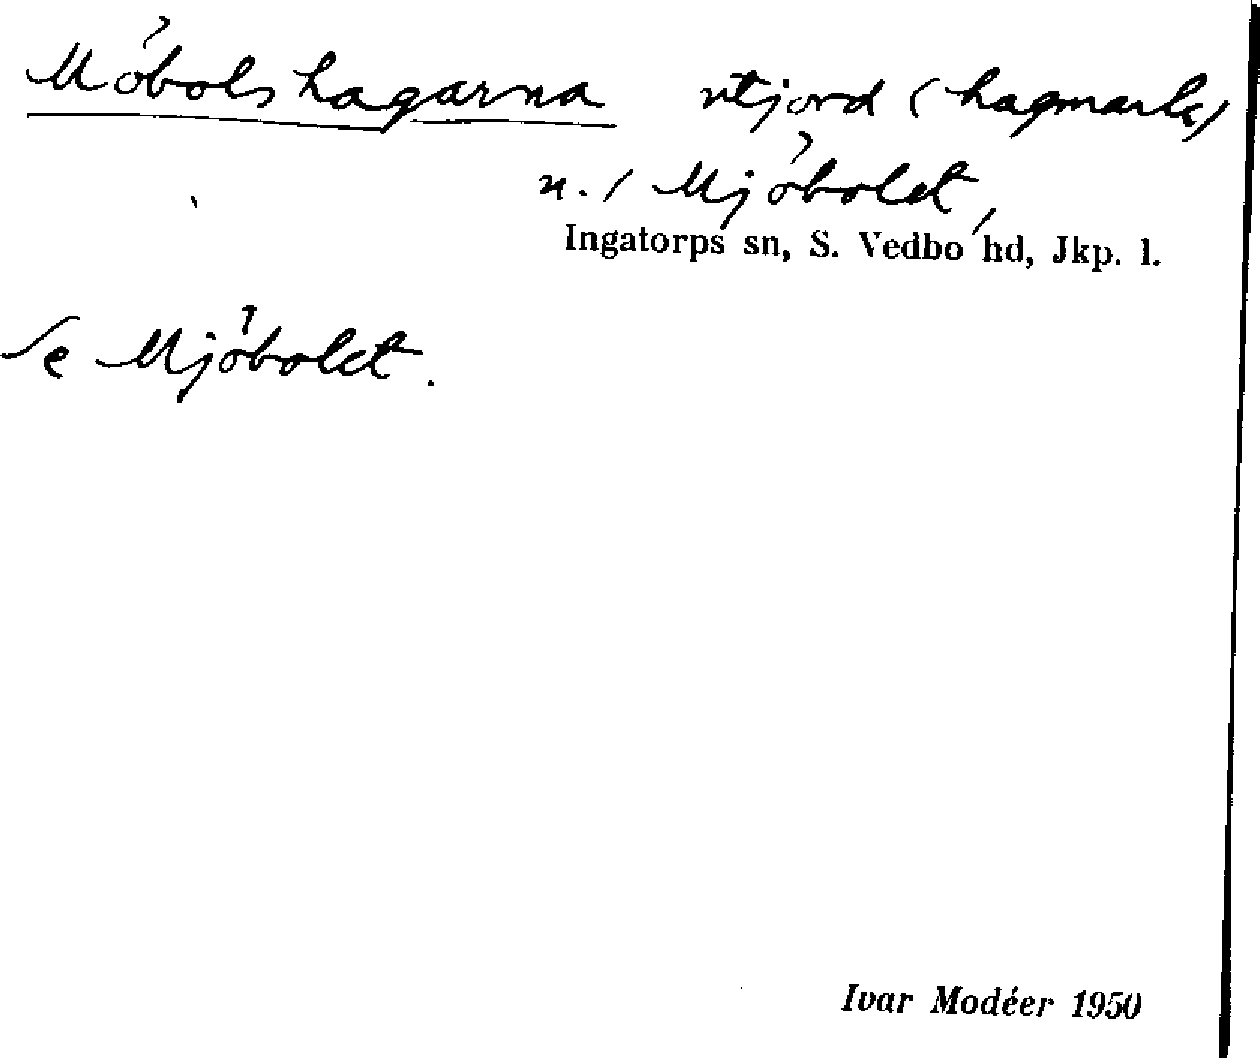 Möbolshagarna utjord (hagmark)
u. / Mjöbolet,
Ingatorps sn, S. Vedbo hd, Jkp. l.
Se Mjöbolet.
Ivar Modéer 1950